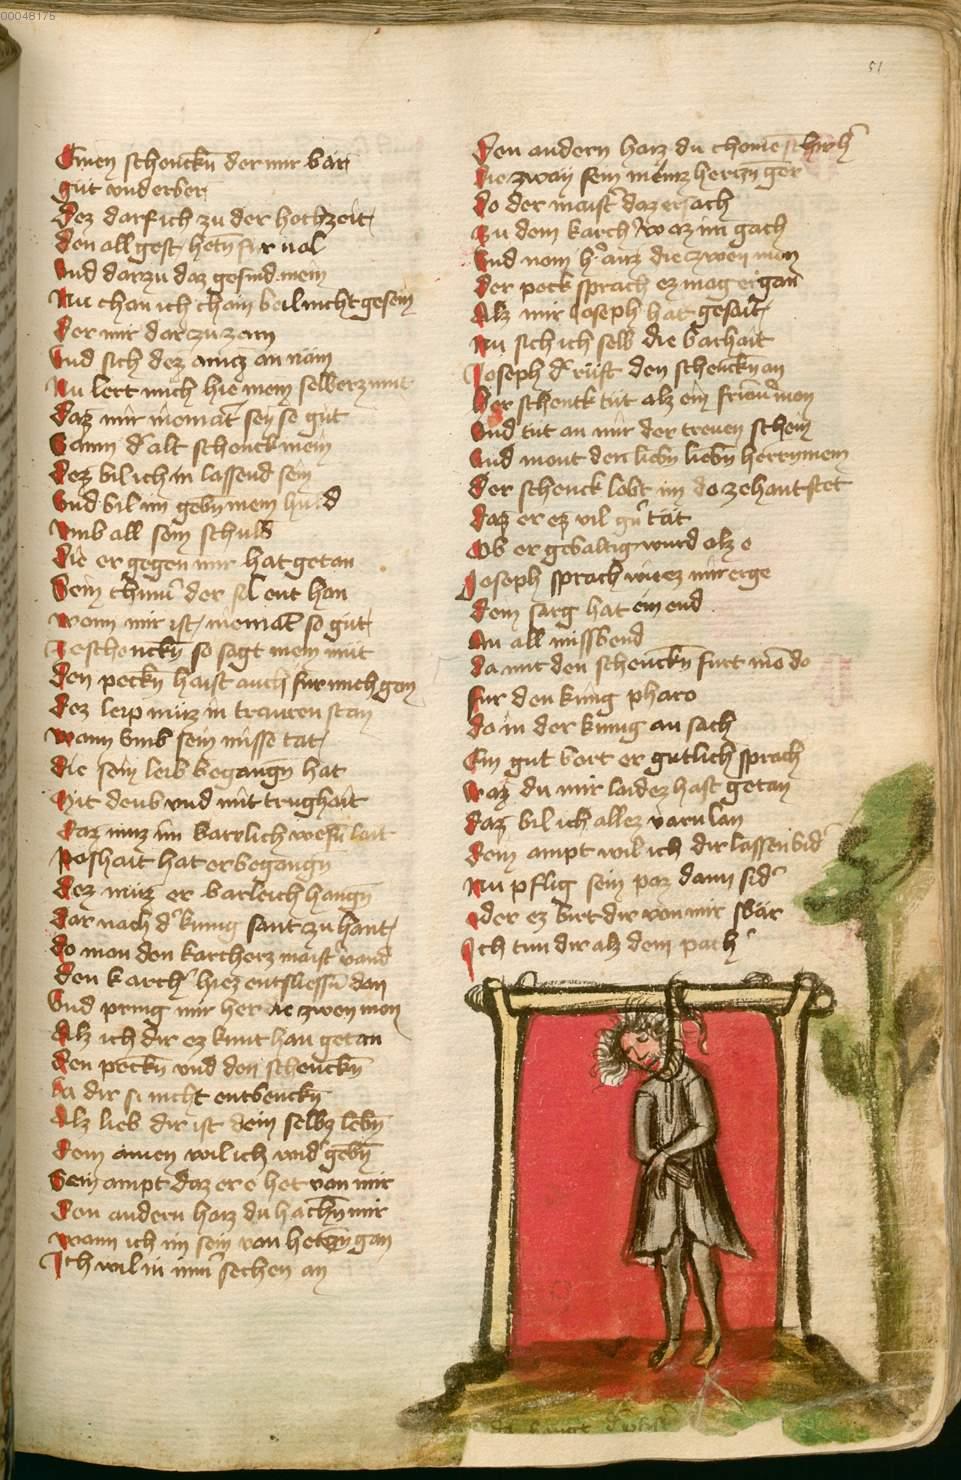 00048175
51
Einen schencken der mir bär
güt vnd erber
Dez darf ich zu der hochzeit
den all gest hetn für val
Vnd darzu daz gesind mein
Nu chan ich chain beil nicht gesein
Der mir dar zu zem
Vnd sich dez ampz an näm
Nu lert mich hie mein selberz
Daz mir niemāt sey so güt
Wann d' alt schenck mein
Dez bil ich in lassend sein
Vnd bil im gebn mein huld
Vmb all sein schuld
Die er gegen mir hat getan
Sein der sol ent han
wann mir ist niemāt so güt
schenckn̄ so sagt mein müt
Den peckn̄ haist auch für mich gan
Dez leip müz in trauren stan
wann vmb sein misse tat
die sein leib begangn̄ hat
Mit deub vnd mit trughait
Daz müz im wesn̄ lait
Poshait hat er begangn̄
Dez müz er barleich hangn̄
Dar nach d' künig sant zu hant
do man den karcherz maist' vand
Den karch' hiez entsliessn̄ dan
Vnd pring mir her die zwen man
Alz ich dir ez kunt han getan
Den peckn̄ vnd den schenckn̄
La dir si nicht entbenckn̄
Alz lieb dir ist dein selbz lebn̄
Dem ainen wil ich wid' gebn̄
Sein ampt daz er e het von mir
Den andern haiz du hachn̄ mir
wann ich im sein van hetzn̄ gan
Ich wil in nim' sechen an
Den andern haiz du
die zway sein meinz hertzn̄ ger
Do der maist' daz ersach
Zu dem karch' waz im gach
Vnd nom h' auz die zwen man
Der peck sprach ez mag ergan
Alz mir Joseph hat gesait
Nu sich ich selb die barhait
Joseph d' rüft den schenckn̄ an
Her schenck tüt alz ein man
Vnd tüt an mir der treuen schein
Vnd mont den liebn̄ liebn̄ herrn mein
Der schenck lobt im do ze hant stet
daz er ez vil g'n tät
Ob er gebaltig wurd alz e
Joseph sprach wie ez mir erge
Dem sarg hat ein end
An all missbend
Da mit den schenckn̄ fürt mā do
für den künig pharo
do in der künig an sach
Ein güt bort er gütlich sprach
waz du mir laidez hast getan
daz bil ich allez varn lan
dem ampt wil ich dir lassen wid'
Nu pflig sein paz dann sid'
oder ez birt dir von mir sbär
Ich tün dir alz dem pach'